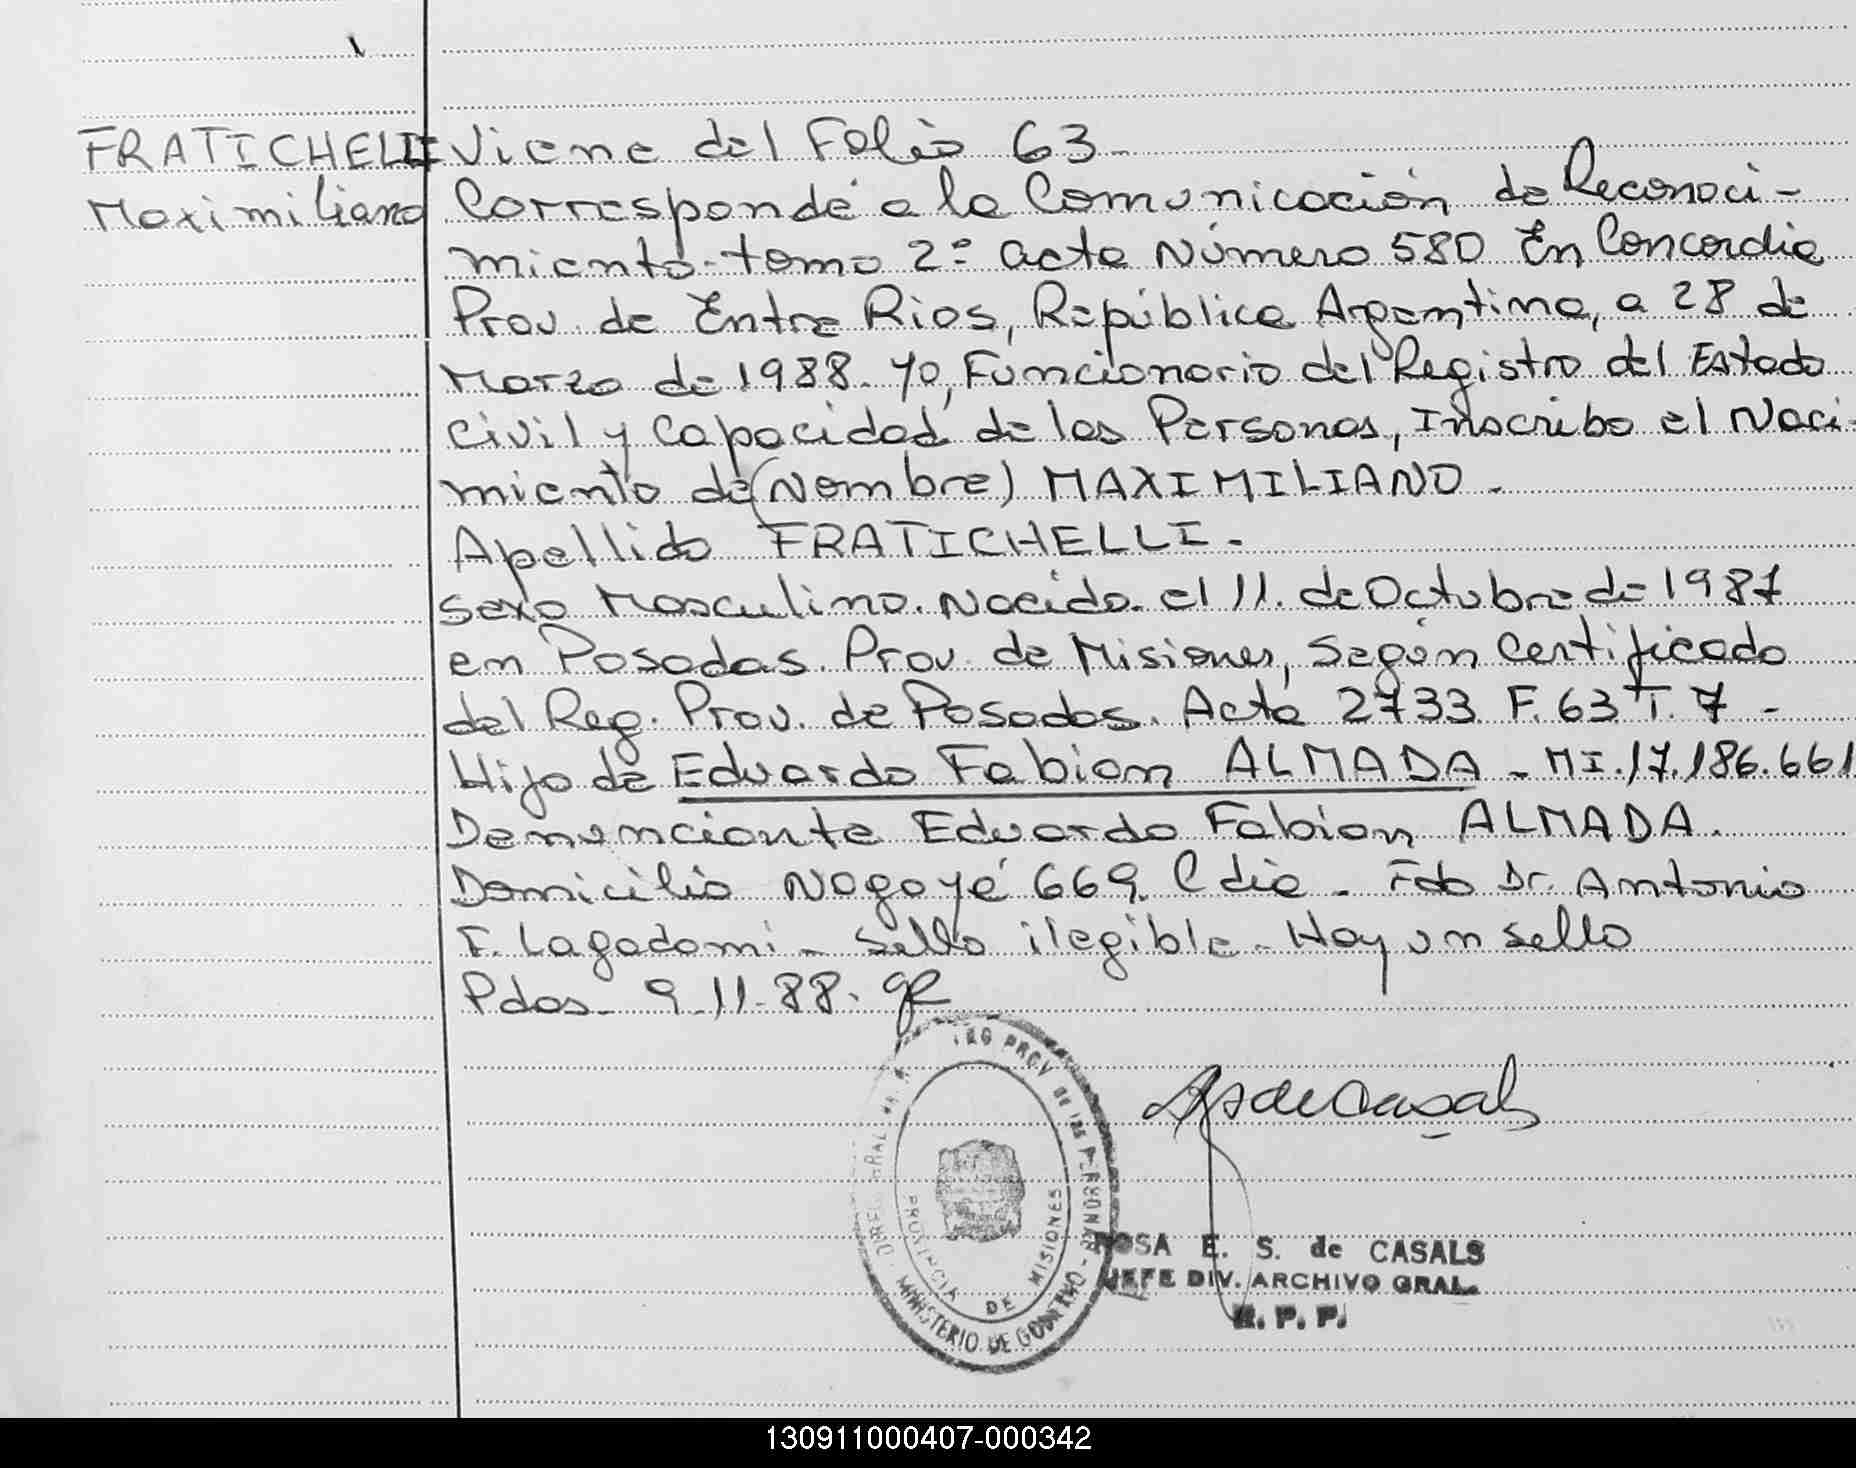 FRATICHELLI Viene del Folio 63-
Maximiliano Correspondé a la Comunicación de Reconoci-
miento. tomo 2º acta Número 580 En Concordia
Prov. de Entre Rios, República Argentina, a 28 de
Marzo de 1988. yo, Funcionario del Registro del Estado
civil y Capacidad de las Personas, Inscribo el Naci-
miento de (Nombre) MAXIMILIANO -
Apellido FRATICHELLI -
Sexo Masculino. Nacido el 11. de Octubre de 1987
en Posadas. Prov. de Misiones, Según Certificado
del Reg. Prov. de Posadas. Acta 2733 F. 63 T. 7 -
Hijo de Eduardo Fabian ALMADA - MI. 17.186.661
Denunciante Eduardo Fabian ALMADA.
Domicilio Nogoyé 669. Cdia - Fdo Dr. Antonio
F. Lagadami - Sello ilegible - Hay un sello
Pdas- 9-11-88.
REG PROV DE LAS PER
MINISTERIO DE GOBIERNO
PROVINCIA DE MISIONES
ROSA E. S. de CASALS
JEFE DIV. ARCHIVO GRAL.
R. P. P.
130911000407-000342